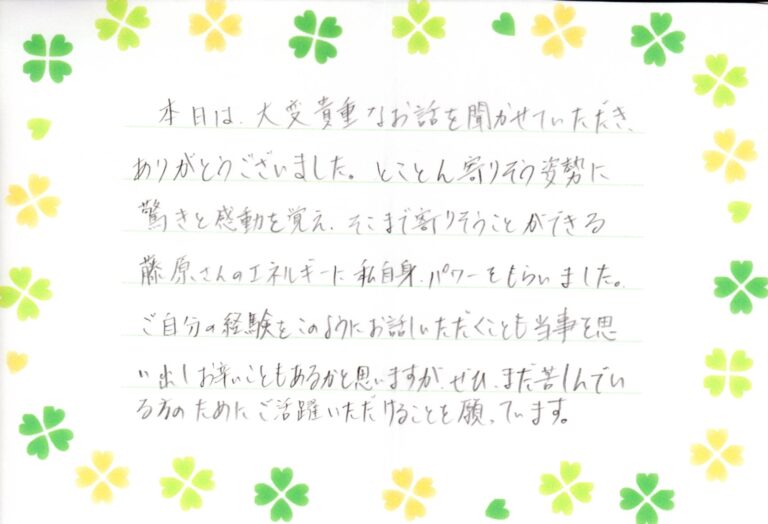 本日は、大変貴重なお話を聞かせていただき、
ありがとうございました。とことん寄りそう姿勢に
驚きと感動を覚え、そこまで寄りそうことができる
藤原さんのエネルギーに私自身、パワーをもらいました。
ご自分の経験をこのようにお話しいただくことも当事を思
い出しお辛いこともあるかと思いますが、ぜひ、まだ苦しんでい
る方のためにご活躍いただけることを願っています。